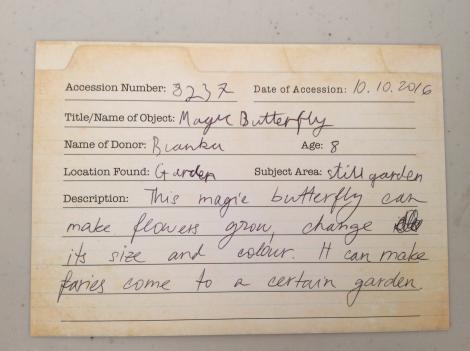 Accession Number: 3237 Date of Accession: 10.10.2016
Title/Name of Object: Magic Butterfly
Name of Donor: Bianka Age: 8
Location Found: Garden Subject Area: still garden
Description: This magic butterfly can
make flowers grow, change
its size and colour. It can make
faries come to a certain garden